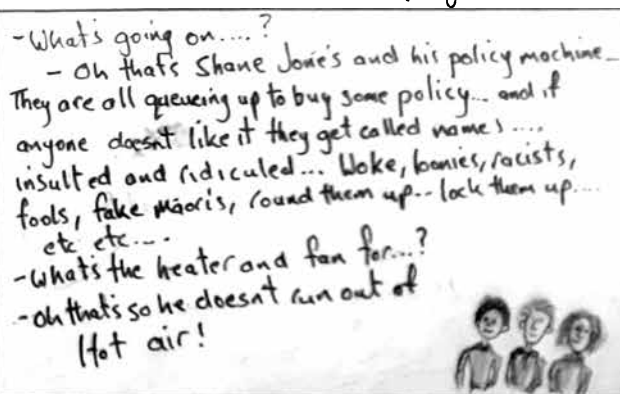 -What's going on....?
- Oh that's Shane Jone's and his policy machine
They are all queueing up to buy some policy... and if
anyone doesn't like it they get called names....
insulted and ridiculed... Woke, loonies, racists,
fools, fake Māoris, round them up.. lock them up....
etc etc....
-What's the heater and fan for...?
-Oh that's so he doesn't run out of
Hot air!